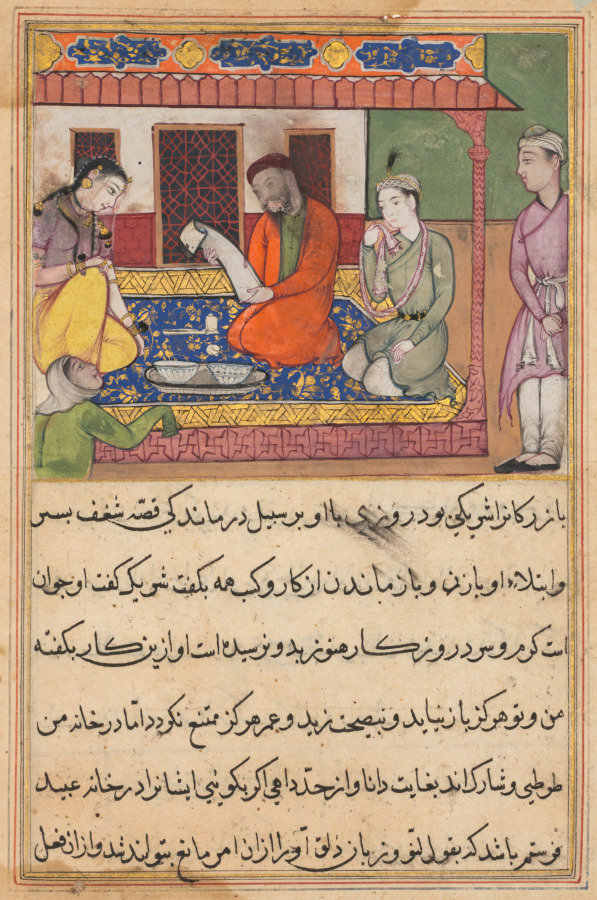 بازرکانرا شریکی بود روزی با او بر سبیل درماندکی قصّه شغف پسر
وابتلاء او با زنی و باز ماندن از کار و کسب همه بکفت شریک کفت او جوان
است کرم و سرد روزکار هنوز ندیده است او ازین کار بکفته
من و تو هرکز باز نیاید و بنصیحت زید و عمر هرکز ممتنع نکردد امّا در خانه من
طوطیی و شارکی اند بغایت دانا و از حدّ داهی اکر بکوئیی ایشانرا در خانه عبید
فرستم باشد که بقول و زبان ذلق او را ازان امر مانع توانند شد و ازان فعل